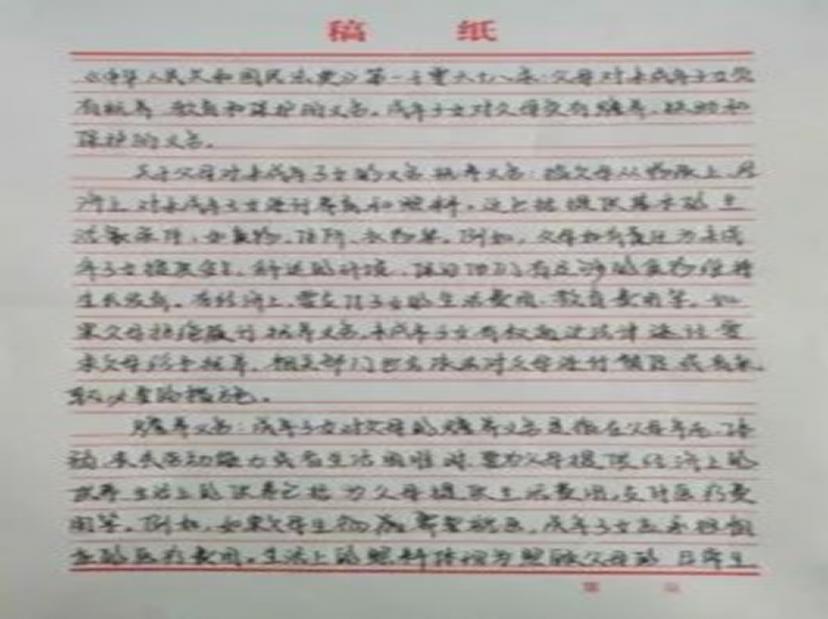 稿 纸
《中华人民共和国民法典》第一千零六十八条:父母对未成年子女负
有抚养、教育和保护的义务。成年子女对父母负有赡养、扶助和
保护的义务。
关于父母对未成年子女的义务 抚养义务:指父母从物质上、经
济上对未成年子女进行养育和照料,这包括提供基本的生
活条件,如食物、住所、衣物等。例如,父母和有责任为未成
年子女提供安全、舒适的环境,保证他们有足够的食物维持
生长发育。在经济上,需支付子女的生活费用、教育费用等。如
果父母拒绝履行抚养义务,未成年子女有权通过法律途径要
求父母给予抚养,相关部门也会依法对父母进行
取必要的措施。
赡养义务:成年子女对父母的赡养义务是指在父母年老、
病、丧失劳动能力或者生活困难时,要为父母提供经济上的
生活上的供养包括为父母提供生活费用,支付医疗费
用等。例如,如果父母生病需要就医,成年子女应承担相
应的医疗费用。生活上的照料体现为照顾父母的日常生
第 页